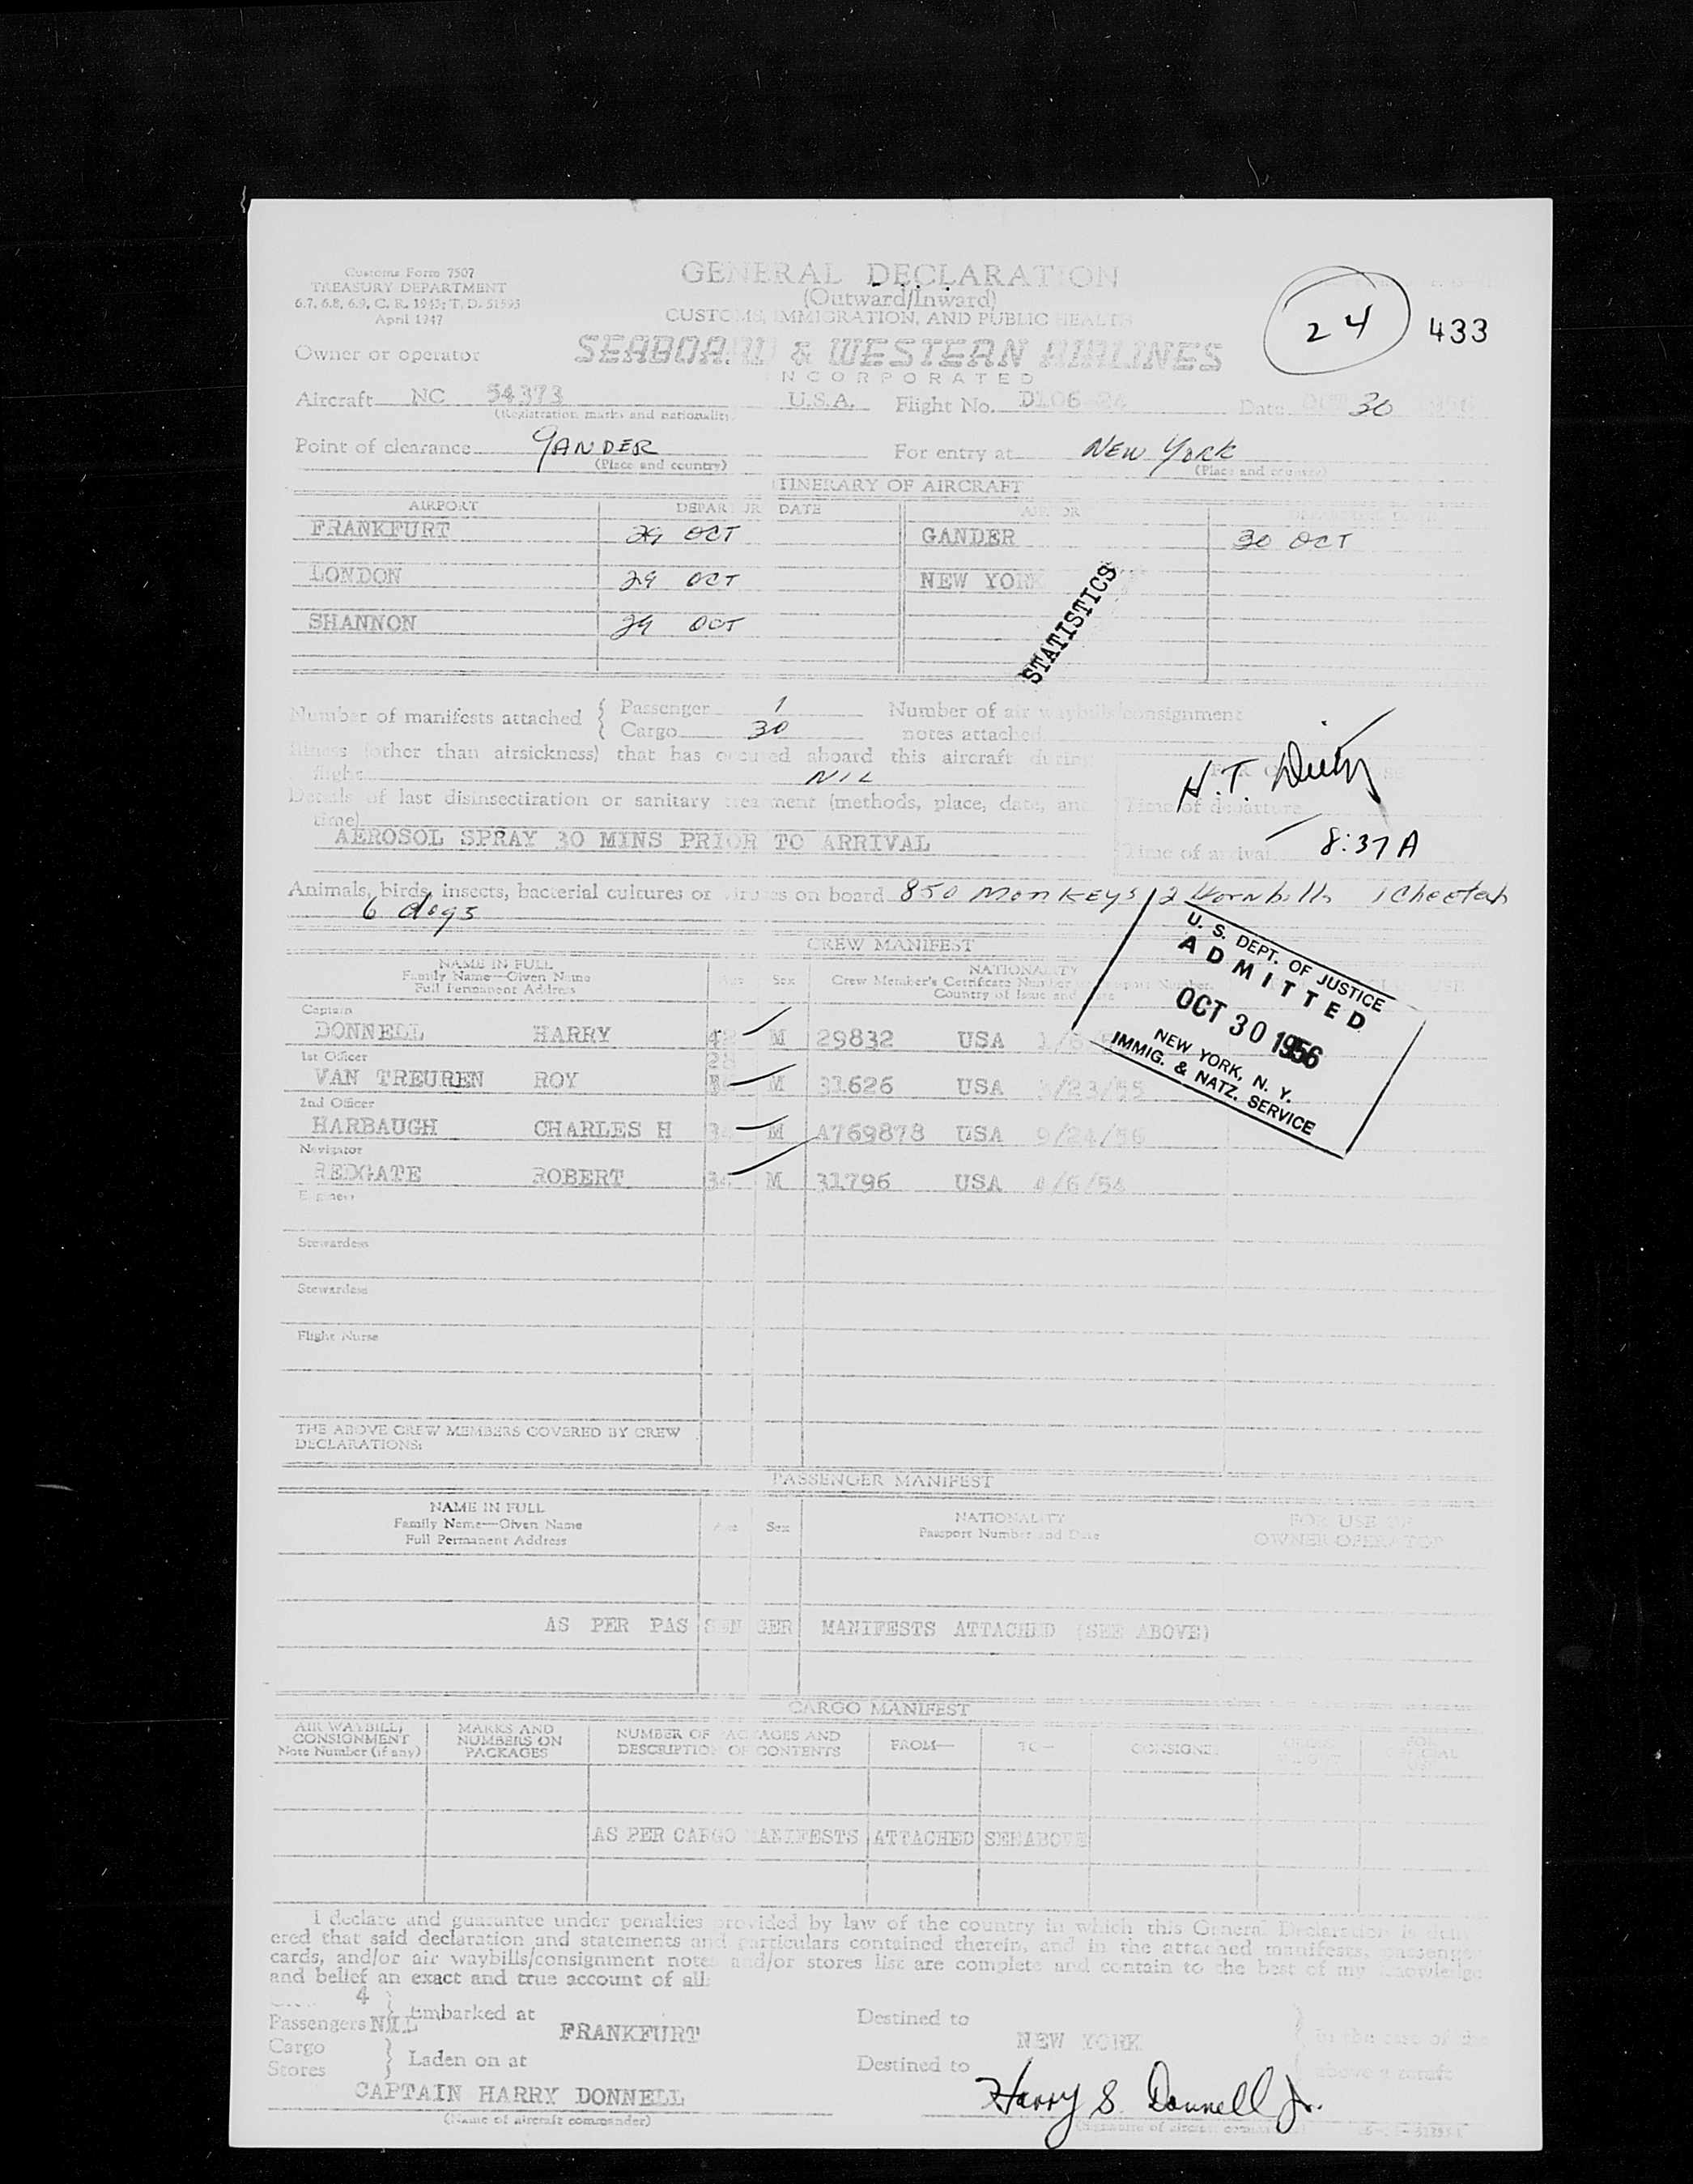 Customs Form 7507
TREASURY DEPARTMENT
6.7, 6.8, 6.9, C. R. 1943; T. D. 51595
April 1947
GENERAL DECLARATION
(Outward/Inward)
CUSTOMS, IMMIGRATION, AND PUBLIC HEALTH
24
433
Owner or operator SEABOARD & WESTERN AIRLINES
INCORPORATED
Aircraft NC 54373 U.S.A. Flight No. D106-24 Date OCT 30
(Registration marks and nationality)
Point of clearance GANDER For entry at NEW YORK
(Place and country) (Place and country)
ITINERARY OF AIRCRAFT
AIRPORT DEPARTURE DATE AIRPORT
FRANKFURT 29 OCT GANDER 30 OCT
LONDON 29 OCT NEW YORK
SHANNON 29 OCT
STATISTICS
Number of manifests attached { Passenger 1 Number of air waybills/consignment
Cargo 30 notes attached
Illness (other than airsickness) that has occured aboard this aircraft during
flight NIL
H.T.
Details of last disinsectiration or sanitary treatment (methods, place, date, and Time of departure
time)
AEROSOL SPRAY 30 MINS PRIOR TO ARRIVAL
Time of arrival 8:37 A
Animals, birds, insects, bacterial cultures or viruses on board 850 Monkeys 12 Hornbills 1 Cheetah
6 dogs
U. S. DEPT. OF JUSTICE
ADMITTED
OCT 30 1956
NEW YORK, N. Y.
IMMIG. & NATZ. SERVICE
CREW MANIFEST
NAME IN FULL
Family Name—Given Name
Full Permanent Address
Age Sex
NATIONALITY
Crew Member's Certificate Number or Passport Number,
Country of Issue and Date
Captain
DONNELL HARRY M 29832 USA
1st Officer
28
VAN TREUREN ROY M 31626 USA 3/23/55
2nd Officer
HARBAUGH CHARLES H M A769878 USA 9/24/56
Navigator
REDGATE ROBERT 34 M 31796 USA 4/6/54
Engineer
Stewardess
Stewardess
Flight Nurse
THE ABOVE CREW MEMBERS COVERED BY CREW
DECLARATIONS:
PASSENGER MANIFEST
NAME IN FULL
Family Name—Given Name
Full Permanent Address
Age Sex
NATIONALITY
Passport Number and Date
FOR USE OF
OWNER-OPERATOR
AS PER PASSENGER MANIFESTS ATTACHED (SEE ABOVE)
CARGO MANIFEST
AIR WAYBILL/
CONSIGNMENT
Note Number (if any)
MARKS AND
NUMBERS ON
PACKAGES
NUMBER OF PACKAGES AND
DESCRIPTION OF CONTENTS
FROM— TO— CONSIGNEE
AS PER CARGO MANIFESTS ATTACHED SEE ABOVE
I declare and guarantee under penalties provided by law of the country in which this General Declaration is deliv
ered that said declaration and statements and particulars contained therein, and in the attached manifests, passenger
cards, and/or air waybills/consignment notes and/or stores list are complete and contain to the best of my knowledge
and belief an exact and true account of all:
4
Passengers NIL } Embarked at FRANKFURT Destined to NEW YORK in the case of the
Cargo
Stores } Laden on at Destined to above aircraft
CAPTAIN HARRY DONNELL Harry S. Donnell Jr.
(Name of aircraft commander) (Signature of aircraft commander)